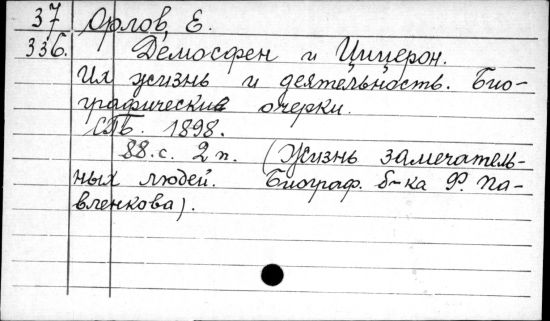 37 Орлов, Е.
336. Демосфен и Цицерон.
Их жизнь и деятельность. Био-
графические очерки.
СПБ. 1898.
88.с. 2 п. (Жизнь замечатель-
ных людей. Биограф. б-ка Ф. Па-
вленкова).